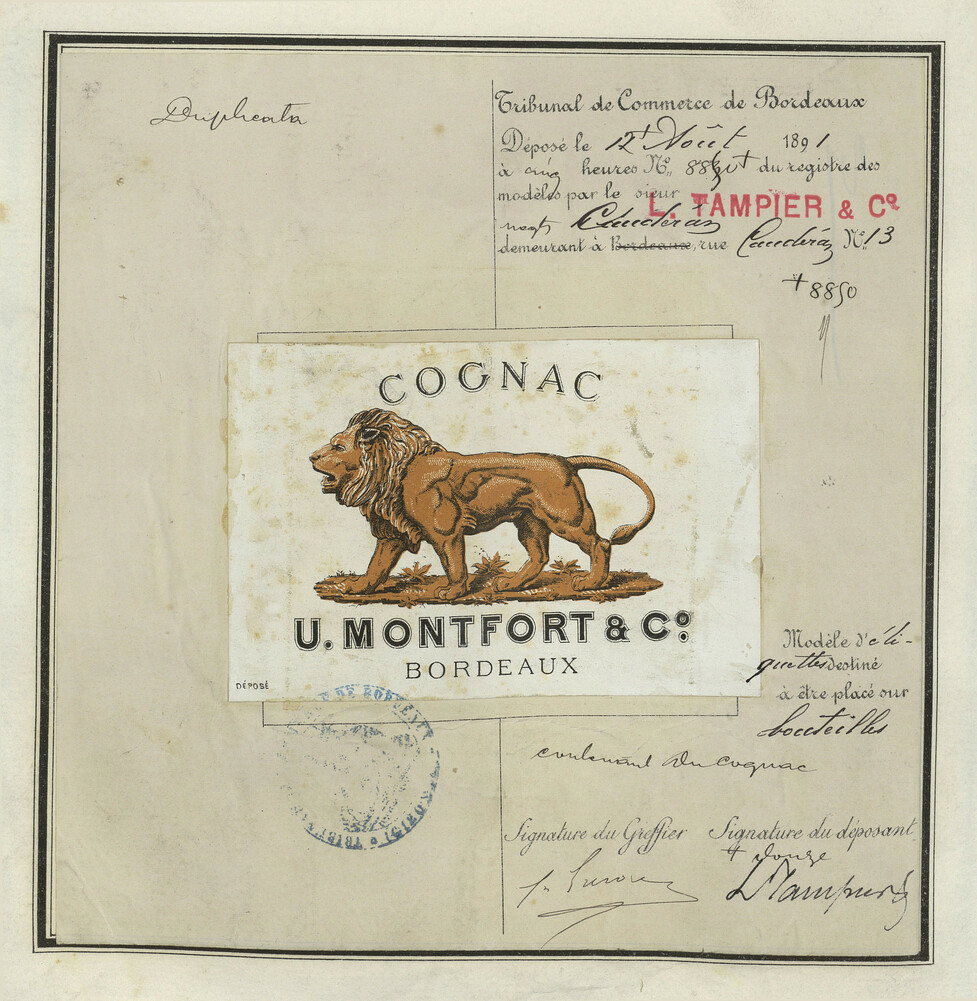 Duplicata
Tribunal de Commerce de Bordeaux
Déposé le 12+ Août 1891
à cinq heures No. 88 + du registre des
modèles par le sieur L. TAMPIER & Co
negt Caudéran
demeurant à Bordeaux, rue Caudéran No. 13
+ 8850
COGNAC
U. MONTFORT & Co.
BORDEAUX
DÉPOSÉ
Modèle d'éti-
quettes destiné
à être placé sur
bouteilles
contenant du cognac
Signature du Greffier Signature du déposant
+ douze
L Tampier